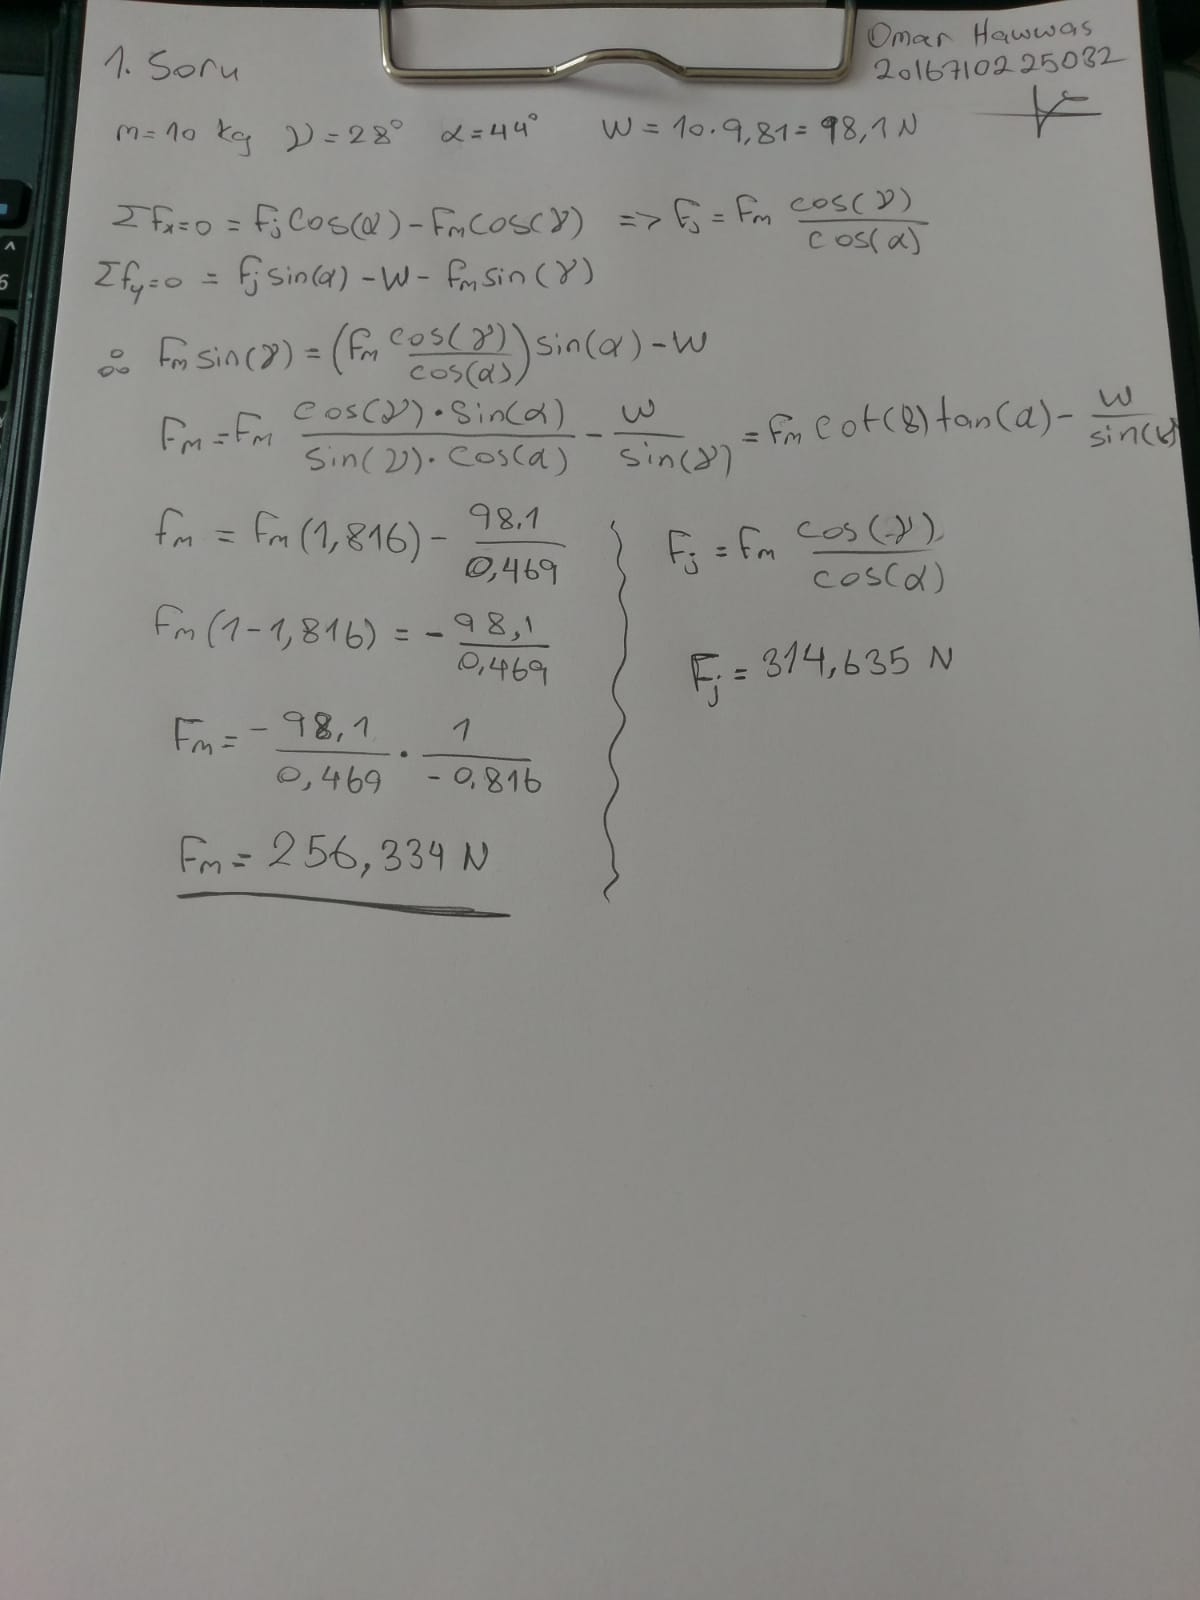 Omar Hawwas
2016710225032
1. Soru
m=10 kg γ=28° α=44° W = 10·9,81 = 98,1 N
Σfx=0 = Fj cos(α) - Fm cos(γ) => Fj = Fm cos(γ)/cos(α)
Σfy=0 = fj sin(α) - W - fm sin(γ)
∴ Fm sin(γ) = (Fm cos(γ)/cos(α)) sin(α) - W
Fm = Fm cos(γ)·sin(α)/sin(γ)·cos(α) - W/sin(γ) = Fm cot(γ) tan(α) - W/sin(γ)
fm = Fm (1,816) - 98,1/0,469
Fm (1-1,816) = - 98,1/0,469
Fm = - 98,1/0,469 · 1/-0,816
Fm = 256,334 N
Fj = Fm cos(γ)/cos(α)
Fj = 314,635 N